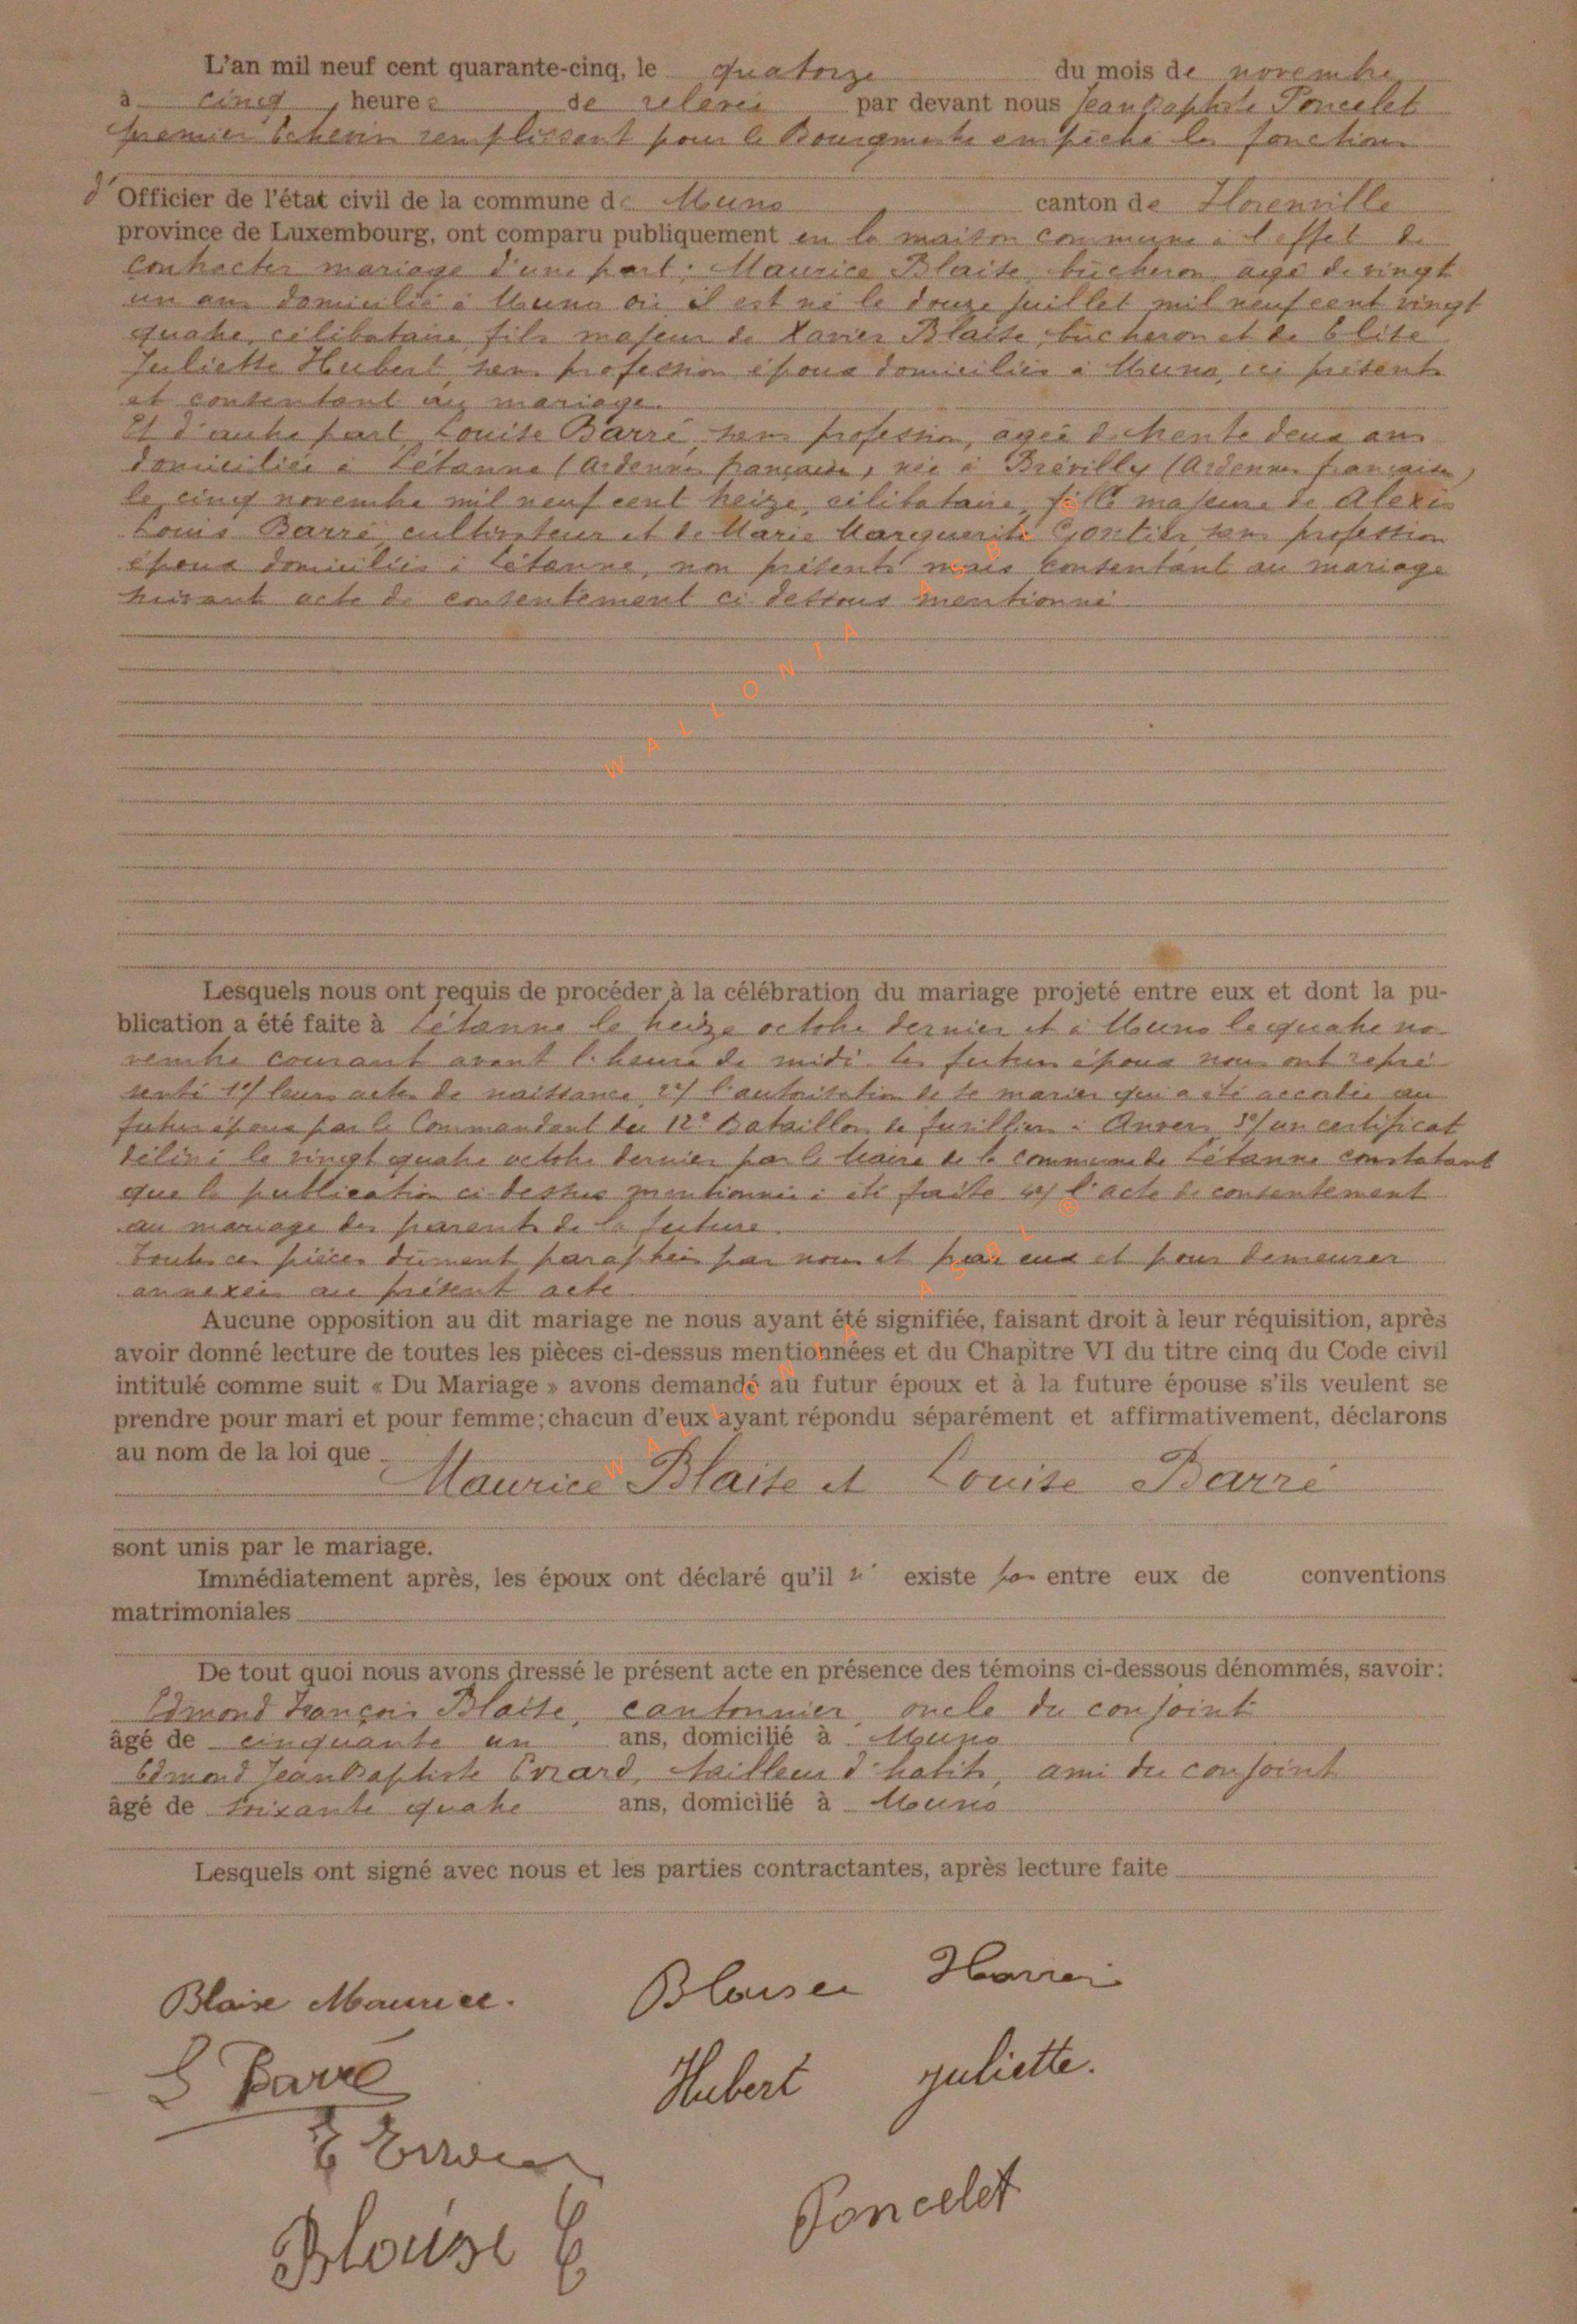 L'an mil neuf cent quarante-cinq, le quatorze du mois de novembre
à cinq heures de relevée par devant nous Jean Baptiste Poncelet
premier Echevin remplissant pour le Bourgmestre empêché les fonctions
d'Officier de l'état civil de la commune de Muno canton de Florenville
province de Luxembourg, ont comparu publiquement en la maison commune à l'effet de
contracter mariage d'une part, Maurice Blaise, bûcheron âgé de vingt
un ans domicilié à Muno où il est né le douze juillet mil neuf cent vingt
quatre, célibataire, fils majeur de Xavier Blaise, bûcheron et de Elise
Juliette Hubert, sans profession époux domiciliés à Muno, ici présents
et consentant au mariage.
Et d'autre part, Louise Barré, sans profession, agée de trente deux ans
domiciliée à Létanne (Ardennes françaises), née à Brévilly (Ardennes françaises)
le cinq novembre mil neuf cent treize, célibataire, fille majeure de Alexis
Louis Barré, cultivateur et de Marie Marguerite Gontier, sans profession
époux domiciliés à Létanne, non présents mais consentant au mariage
suivant acte de consentement ci dessous mentionné
WALLONIA ASBL ®
Lesquels nous ont requis de procéder à la célébration du mariage projeté entre eux et dont la pu-
blication a été faite à Létanne le treize octobre dernier et à Muno le quatre no
vembre courant avant l'heure de midi. Les futurs époux nous ont repré
senté 1°/ leurs actes de naissance 2°/ l'autorisation de se marier qui a été accordée au
futur époux par le Commandant du 12e Bataillon de fusilliers à Anvers 3°/ un certificat
délivré le vingt quatre octobre dernier par le Maire de la commune de Létanne constatant
que la publication ci-dessus mentionnée à été faite 4°/ l'acte de consentement
au mariage des parents de la future.
Toutes ces pièces dûment paraphées par nous et par eux et pour demeurer
annexées au présent acte
Aucune opposition au dit mariage ne nous ayant été signifiée, faisant droit à leur réquisition, après
avoir donné lecture de toutes les pièces ci-dessus mentionnées et du Chapitre VI du titre cinq du Code civil
intitulé comme suit « Du Mariage » avons demandé au futur époux et à la future épouse s'ils veulent se
prendre pour mari et pour femme; chacun d'eux ayant répondu séparément et affirmativement, déclarons
au nom de la loi que
Maurice Blaise et Louise Barré
WALLONIA ASBL ®
sont unis par le mariage.
Immédiatement après, les époux ont déclaré qu'il n' existe pas entre eux de conventions
matrimoniales
De tout quoi nous avons dressé le présent acte en présence des témoins ci-dessous dénommés, savoir:
Edmond François Blaise, cantonnier, oncle du conjoint
âgé de cinquante un ans, domicilié à Muno
Edmond Jean Baptiste Evrard, tailleur d'habits, ami du conjoint
âgé de soixante quatre ans, domicilié à Muno
Lesquels ont signé avec nous et les parties contractantes, après lecture faite
Blaise Maurice. Blaise
L Barré Hubert Juliette.
E
Blaise E Poncelet